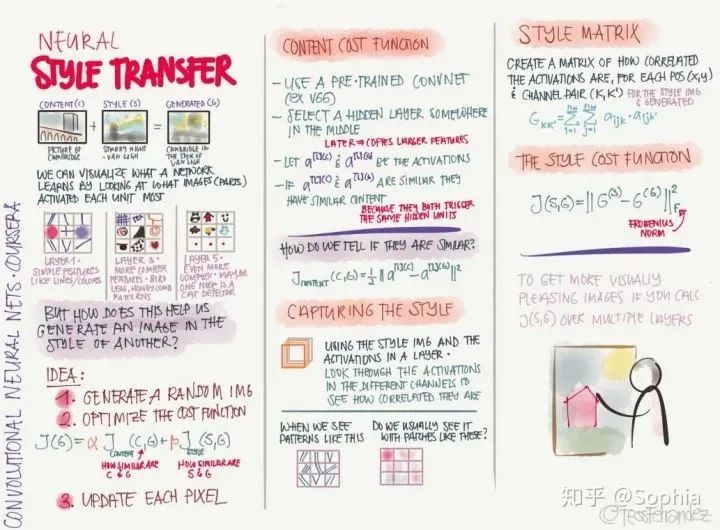 CONVOLUTIONAL NEURAL NETS • COURSERA
NEURAL
STYLE TRANSFER
CONTENT (C)
STYLE (S)
GENERATED (G)
+
=
PICTURE OF
CAMBRIDGE
STARRY NIGHT
- VAN GOGH
CAMBRIDGE IN
THE STYLE OF
VAN GOGH
WE CAN VISUALIZE WHAT A NETWORK
LEARNS BY LOOKING AT WHAT IMAGES (PARTS)
ACTIVATED EACH UNIT MOST
LAYER 1 •
SIMPLE FEATURES
LIKE LINES/COLORS
LAYER 3 •
MORE COMPLEX
FEATURES - BIRD
LEGS, HONEYCOMB
PATTERNS
LAYER 5 •
EVEN MORE
COMPLEX • MAYBE
ONE NODE IS A
CAT DETECTOR
BUT HOW DOES THIS HELP US
GENERATE AN IMAGE IN THE
STYLE OF ANOTHER?
IDEA:
1. GENERATE A RANDOM IMG
2. OPTIMIZE THE COST FUNCTION
J(G) = α J CONTENT (C,G) + β J STYLE (S,G)
HOW SIMILAR ARE
C & G
HOW SIMILAR ARE
S & G
3. UPDATE EACH PIXEL
CONTENT COST FUNCTION
- USE A PRE-TRAINED CONVNET
(EX VGG)
- SELECT A HIDDEN LAYER SOMEWHERE
IN THE MIDDLE
LATER ⇒ COPIES LARGER FEATURES
- LET a[l](C) & a[l](G) BE THE ACTIVATIONS
- IF a[l](C) & a[l](G) ARE SIMILAR THEY
HAVE SIMILAR CONTENT
BECAUSE THEY BOTH TRIGGER
THE SAME HIDDEN UNITS
HOW DO WE TELL IF THEY ARE SIMILAR?
J CONTENT (C,G) = 1/2 || a[l](C) - a[l](G) ||²
CAPTURING THE STYLE
USING THE STYLE IMG AND THE
ACTIVATIONS IN A LAYER •
LOOK THROUGH THE ACTIVATIONS
IN THE DIFFERENT CHANNELS TO
SEE HOW CORRELATED THEY ARE
WHEN WE SEE
PATTERNS LIKE THIS
DO WE USUALLY SEE IT
WITH PATCHES LIKE THESE?
STYLE MATRIX
CREATE A MATRIX OF HOW CORRELATED
THE ACTIVATIONS ARE, FOR EACH POS (X,Y)
& CHANNEL PAIR (K,K') FOR THE STYLE IMG
& GENERATED
THE STYLE COST FUNCTION
J(S,G) = || G(S) - G(G) ||²F
FROBENIUS
NORM
TO GET MORE VISUALLY
PLEASING IMAGES IF YOU CALC
J(S,G) OVER MULTIPLE LAYERS
知乎 @Sophia
@TessFerrandez